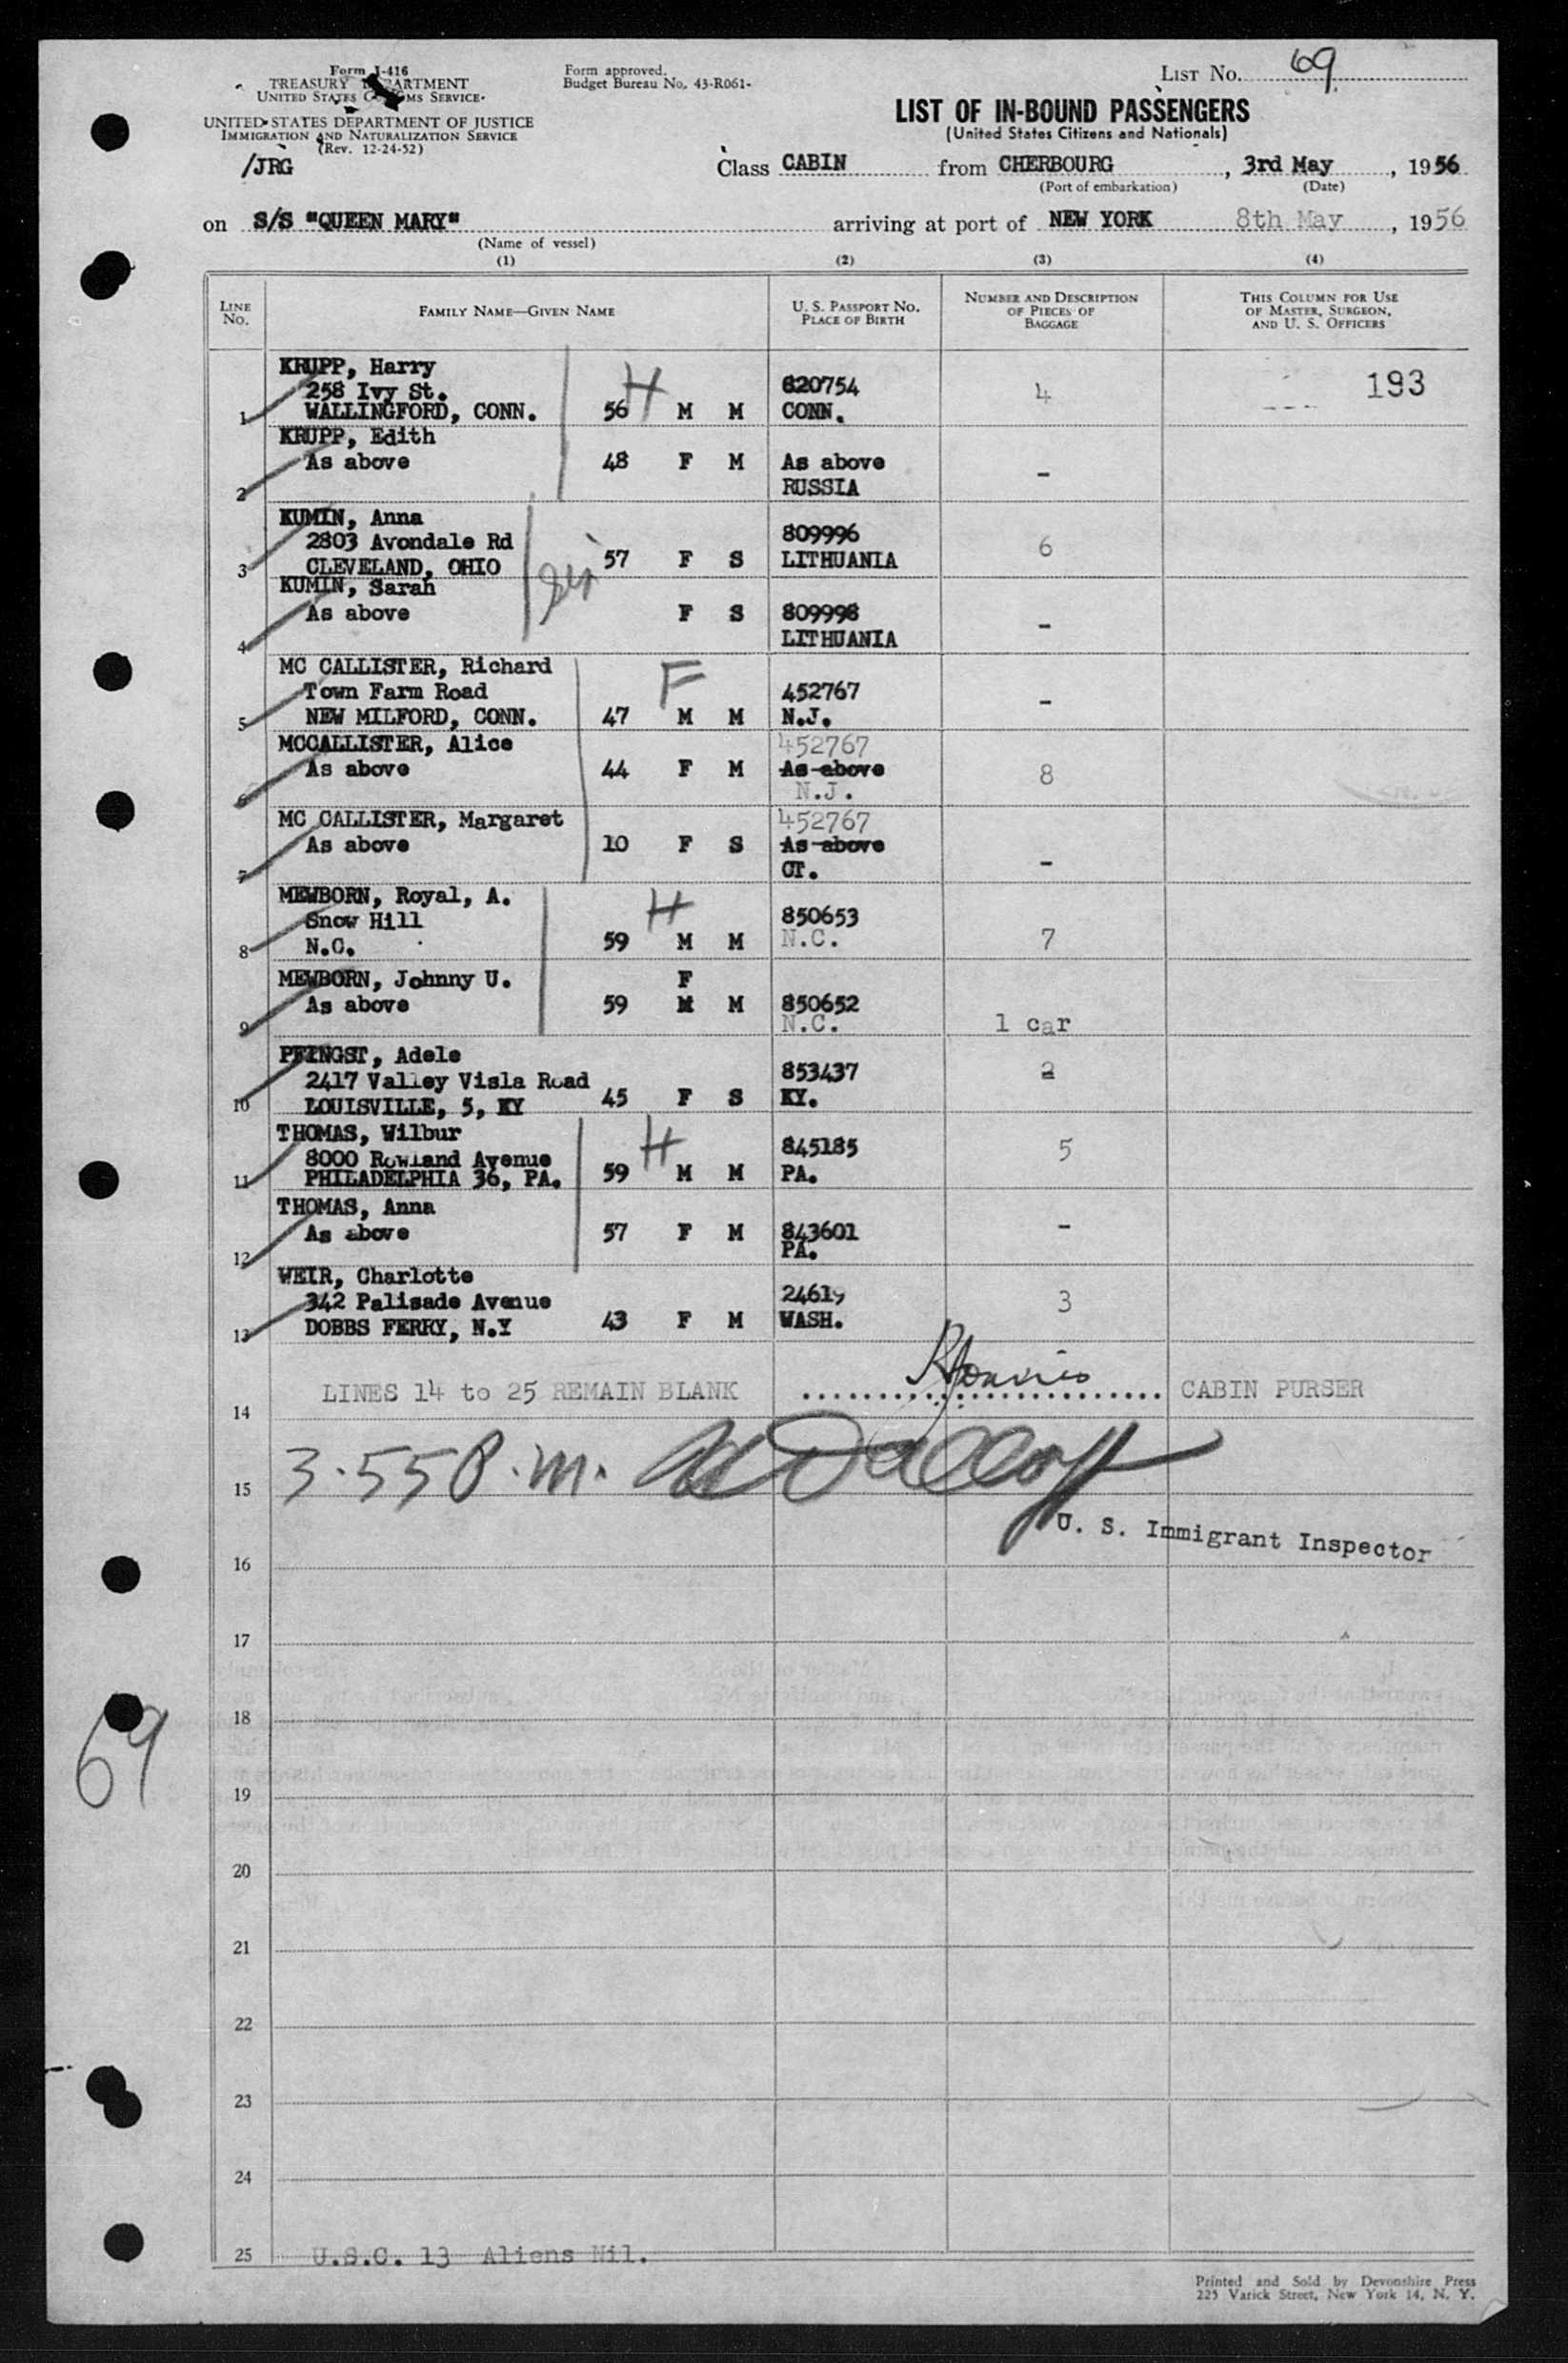 Form I-416
TREASURY DEPARTMENT
UNITED STATES CUSTOMS SERVICE
UNITED STATES DEPARTMENT OF JUSTICE
IMMIGRATION AND NATURALIZATION SERVICE
(Rev. 12-24-52)
/JRG
Form approved.
Budget Bureau No. 43-R061-
LIST NO. 69
LIST OF IN-BOUND PASSENGERS
(United States Citizens and Nationals)
Class CABIN from CHERBOURG, 3rd May, 1956
(Port of embarkation) (Date)
on S/S "QUEEN MARY" arriving at port of NEW YORK 8th May, 1956
(Name of vessel)
(1) (2) (3) (4)
LINE NO.
FAMILY NAME—GIVEN NAME
U. S. PASSPORT NO.
PLACE OF BIRTH
NUMBER AND DESCRIPTION
OF PIECES OF
BAGGAGE
THIS COLUMN FOR USE
OF MASTER, SURGEON,
AND U. S. OFFICERS
KRUPP, Harry
258 Ivy St. H 620754 4 193
1 WALLINGFORD, CONN. 56 M M CONN.
KRUPP, Edith
As above 48 F M As above -
2 RUSSIA
KUMIN, Anna
2803 Avondale Rd 809996 6
3 CLEVELAND, OHIO 57 F S LITHUANIA
KUMIN, Sarah
As above F S 809998 -
4 LITHUANIA
MC CALLISTER, Richard F
Town Farm Road 452767 -
5 NEW MILFORD, CONN. 47 M M N.J.
MCCALLISTER, Alice 452767
As above 44 F M As above 8
6 N.J.
MC CALLISTER, Margaret 452767
As above 10 F S As above -
7 CT.
MEWBORN, Royal, A. H
Snow Hill 850653
8 N.C. 59 M M N.C. 7
MEWBORN, Johnny U. F
As above 59 M M 850652
9 N.C. 1 car
PFINGST, Adele
2417 Valley Visla Road 853437 2
10 LOUISVILLE, 5, KY 45 F S KY.
THOMAS, Wilbur H
8000 Rowland Avenue 845185 5
11 PHILADELPHIA 36, PA. 59 M M PA.
THOMAS, Anna
As above 57 F M 843601 -
12 PA.
WEIR, Charlotte
342 Palisade Avenue 24619 3
13 DOBBS FERRY, N.Y 43 F M WASH.
LINES 14 to 25 REMAIN BLANK CABIN PURSER
14
15 3.55 P.m.
U. S. Immigrant Inspector
16
17
18
69
19
20
21
22
23
24
25 U.S.C. 13 Aliens Nil.
Printed and Sold by Devonshire Press
225 Varick Street, New York 14, N. Y.